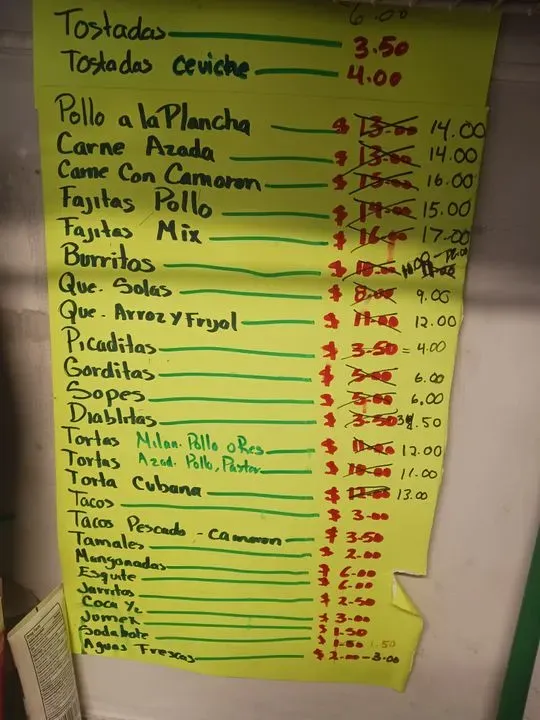 6.00
Tostadas 3.50
Tostadas ceviche 4.00
Pollo a la Plancha $ 13.00 14.00
Carne Azada $ 13.00 14.00
Carne Con Camaron $ 15.00 16.00
Fajitas Pollo $ 14.00 15.00
Fajitas Mix $ 16.00 17.00
Burritos $ 10.00
Que. Solas $ 8.00 9.00
Que. Arroz y Frijol $ 11.00 12.00
Picaditas $ 3.50 = 4.00
Gorditas $ 5.00 6.00
Sopes $ 5.00 6.00
Diablitas $ 3.50 .50
Tortas Milan. Pollo o Res $ 11.00 12.00
Tortas Azad. Pollo, Pastor $ 10.00 11.00
Torta Cubana $ 12.00 13.00
Tacos $ 3.00
Tacos Pescado - Camaron $ 3.50
Tamales $ 2.00
Mangonadas $ 6.00
Esquite $ 6.00
Jarritos $ 2.50
Coca ½ $ 3.00
Jumex $ 1.50
Sodabote $ 1.50 1.50
Aguas Frescas $ 2.00 - 3.00